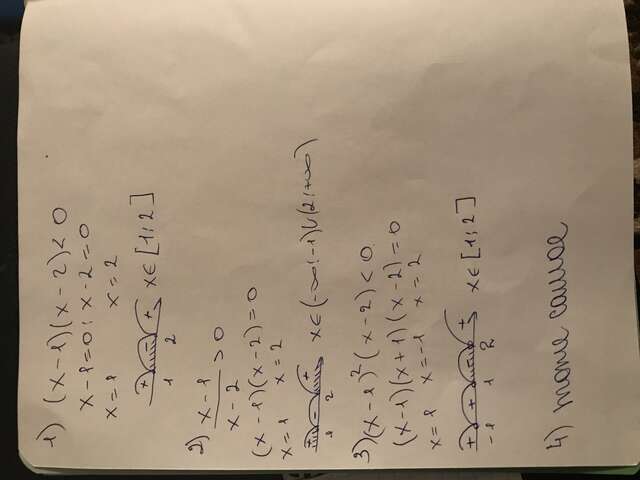 1) (x-1)(x-2)<0
x-1=0; x-2=0
x=1 x=2
+ - +
1 2 x∈[1;2]
2) x-1/x-2>0
(x-1)(x-2)=0
x=1 x=2
- +
1 2 x∈(-∞;-1)∪(2;+∞)
3) (x-1)²(x-2)<0
(x-1)(x+1)(x-2)=0
x=1 x=-1 x=2
+ + - +
-1 1 2 x∈[1;2]
4) тоже самое